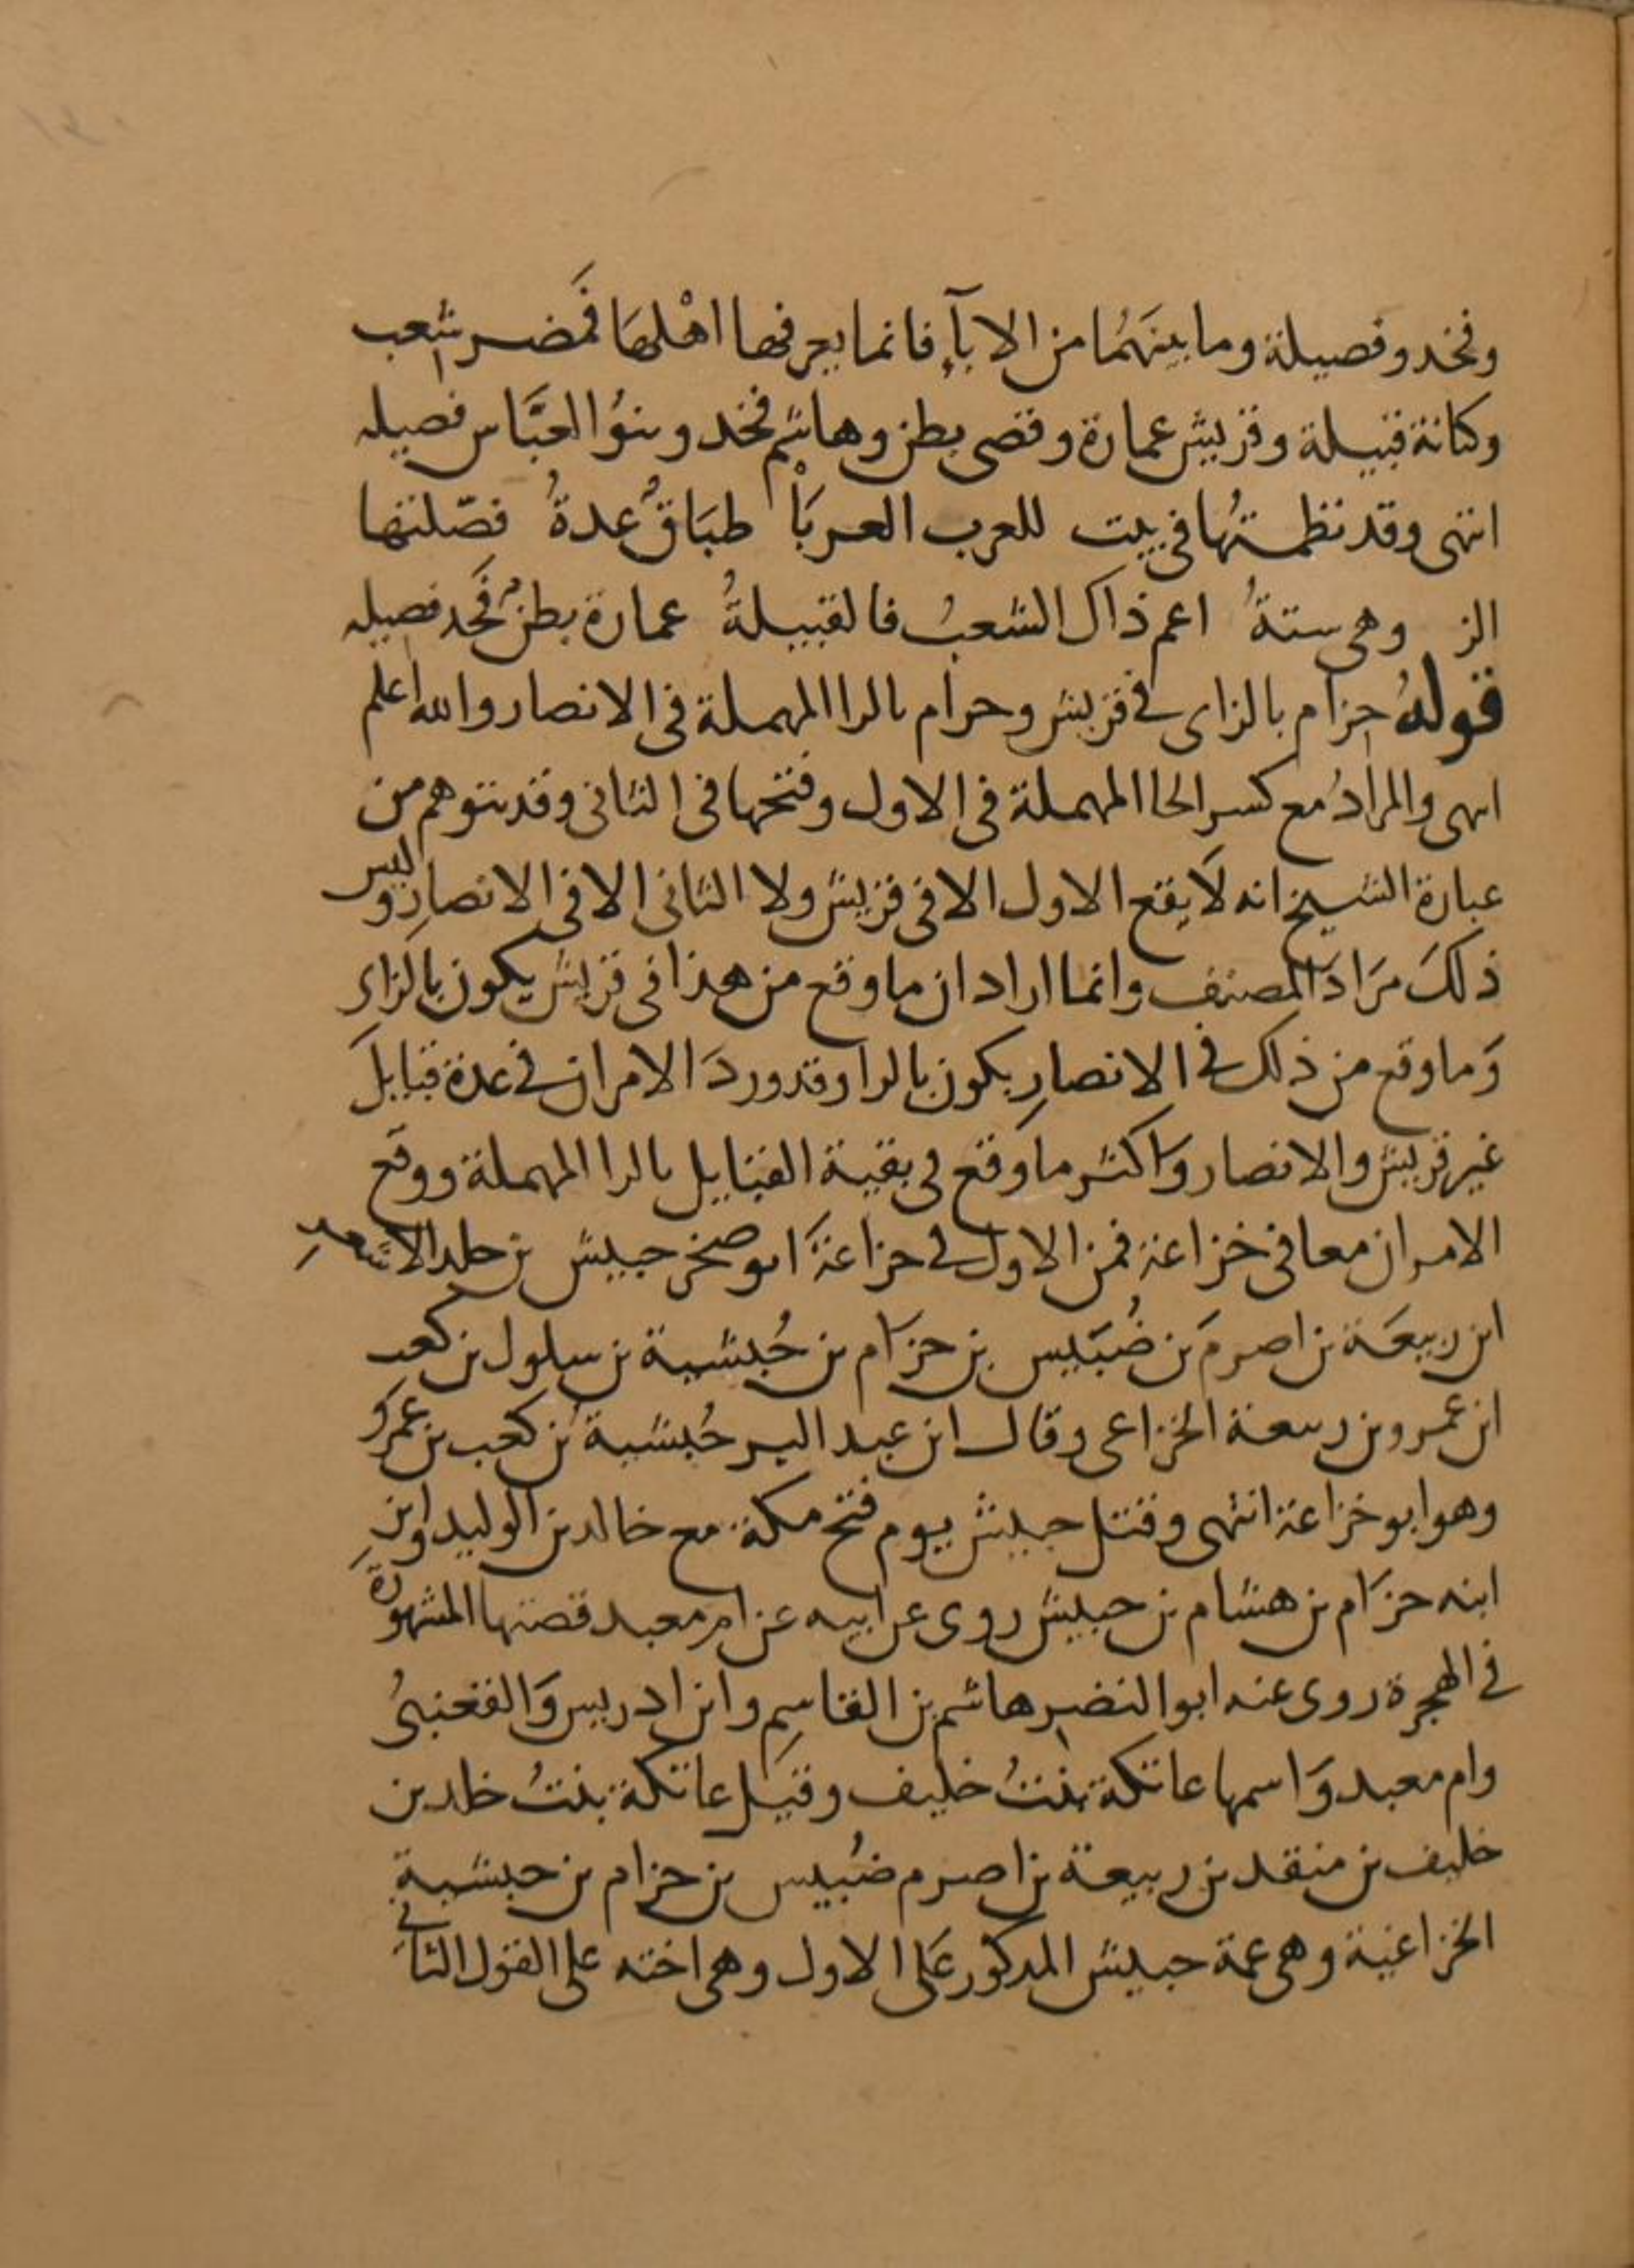 وفخد وفصيلة وما بينَهُما من الابآءِ فانما يعرفها اهْلهَا فمَضر شعب
وكنانة قبيلة وقريش عمارة وقصى بطن وهاشم فخد وبنوُ العبَّاس فصيله
انتهى وقد نظمتهُا فى بيت للعرب العربَاْ طبَاقُ عدةُ فصّلتها
الز وهى ستةُ اعم ذاك الشعبُ فالقبيلةُ عمارة بطنُ فَخد فصيله
قولهُ حزام بالزاى فى قريش وحرام بالرا المهملة فى الانصار والله اعلم
انتهى والمرادُ مع كسر الحا المهملة فى الاول وفتحها فى الثانى وقد يتوهم من
عبارة الشيخ انه لَا يقع الاول الا فى قريش ولا الثانى الا فى الانصارِ وليس
ذلكَ مرَادَ المصنف وانما اراد ان ما وقع من هذا فى قريش يكون بالزاى
وَما وقع من ذلك فى الانصارِ يكون بالرا وقد وردَ الامران فى عدة قبايلَ
غير قريش والانصار واكثر ما وقع فى بقية القبايل بالرا المهملة ووقع
الامران معا فى خزاعة فمن الاول فى خزاعةَ ابو صخر حبيش بن خلد الاشعر
ابن ربيعَة بن اصرمَ بن ضُبَيس بن حزَام بن حُبشية بن سلول بن كعب
ابن عمرو بن ربيعة الخزاعى وقال ابن عبد البر حُبشية بن كعب بن عمرو
وهو ابو خزاعة انتهى وقتل حبيش يوم فتح مكة مع خالد بن الوليد وابن
ابنه حزَام بن هشام بن حبيش روى عن ابيه عن ام معبد قصتها المشهورة
فى الهجرة روى عنه ابو النضر هاشم بن القاسِم وابن ادريس وَالقعنبىُ
وام معبد وَاسمها عاتكة بنتُ خليف وقيَل عاتكة بنتُ خلد بن
خليف بن منقد بن ربيعة بن اصرم ضُبيس بن حزام بن حبشية
الخزاعية وهى عمة حبيش المدكور عَلى الاول وهى اخته على القول الثانى